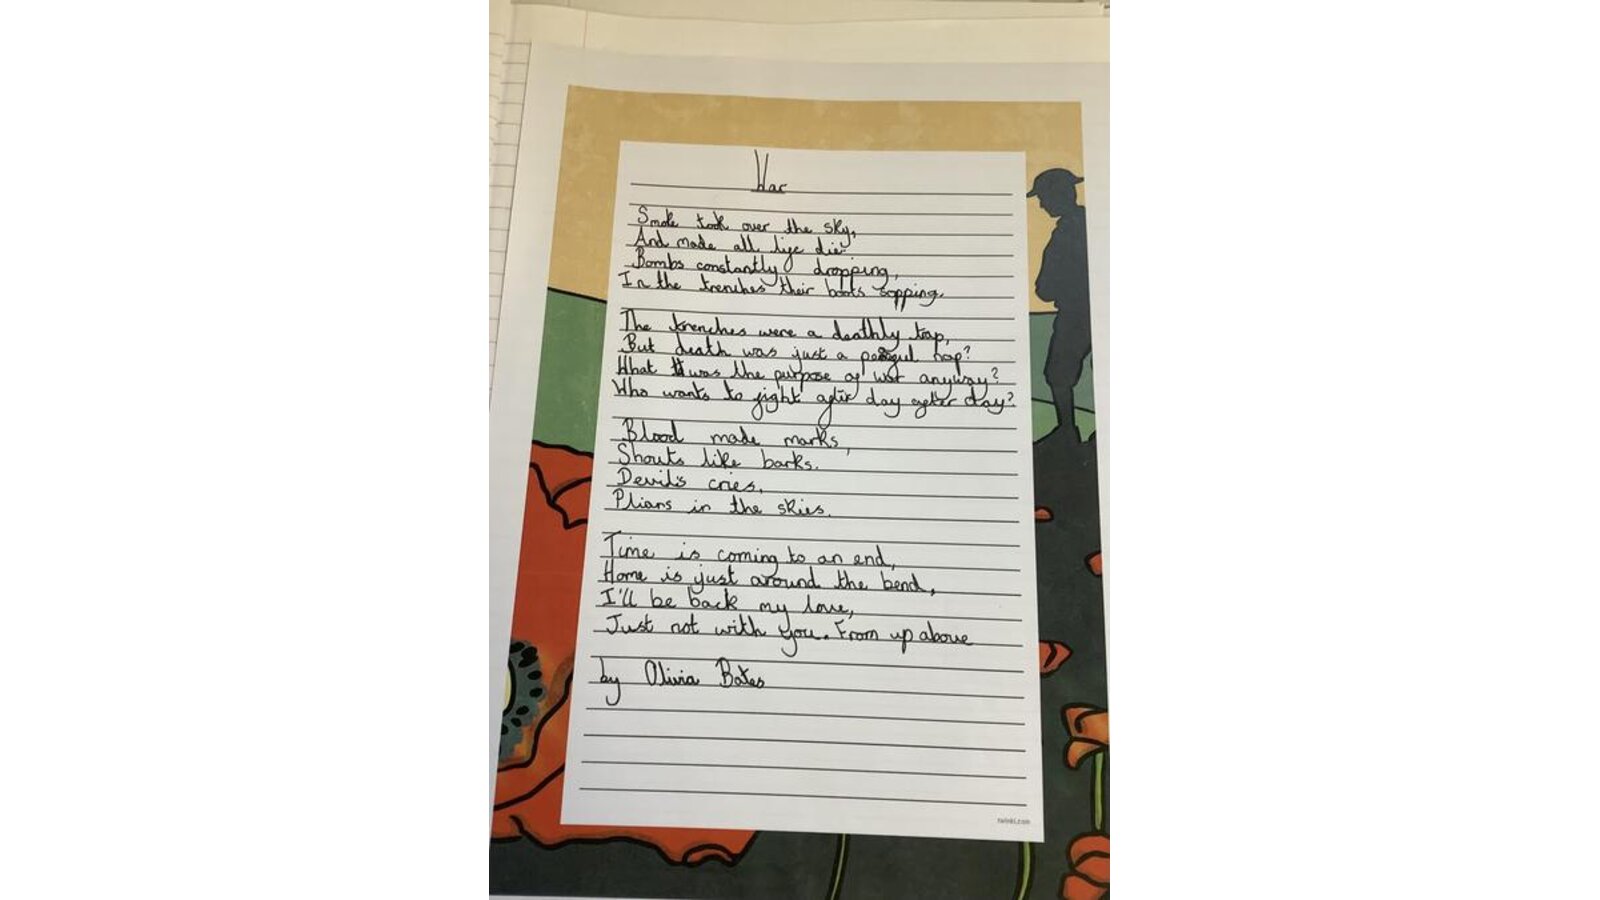 War
Smoke took over the sky,
And made all life die
Bombs constantly dropping,
In the trenches their boots sopping.
The trenches were a deathly trap,
But death was just a nap?
What was the purpose of war anyway?
Who wants to fight after day after day?
Blood made marks,
Shouts like barks.
Devil's cries,
in the skies.
Time is coming to an end,
Home is just around the bend,
I'll be back my love,
Just not with you. From up above
by Olivia Bates
twinkl.com